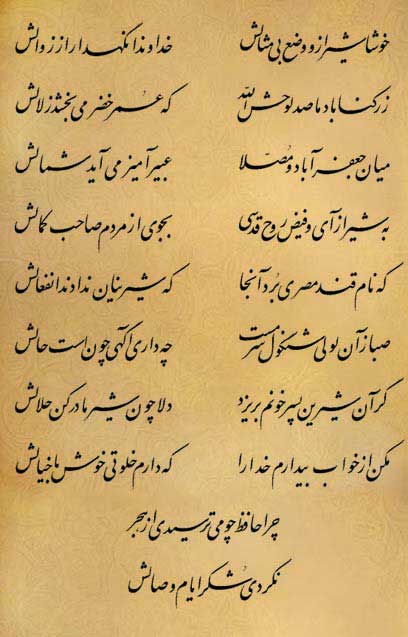 خوشا شیراز و وضع بی مثالش خداوندا نگهدار از زوالش
ز رکناباد ما صد لوحش الله که عُمر خضر می بخشد زلالش
میان جعفرآباد و مُصلّا عبیرآمیز می آید شمالش
به شیراز آی و فیض روح قدسی بجوی از مردم صاحب کمالش
که نام قند مصری بُرد آنجا که شیرینان ندادند انفعالش
صبا زآن لولی شنگول سرمست چه داری آگهی چون است حالش
گر آن شیرین پسر خونم بریزد دلا چون شیر مادر کن حلالش
مکن از خواب بیدارم خدا را که دارم خلوتی خوش با خیالش
چرا حافظ چو می ترسیدی از هجر
نکردی شُکر ایام وصالش